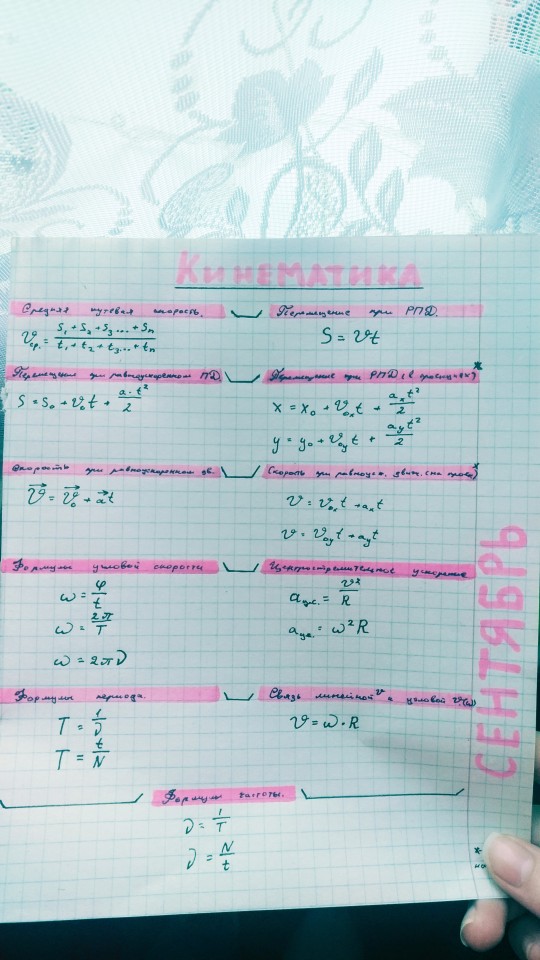 КИНЕМАТИКА
Средняя путевая скорость.
Vср. = (S₁ + S₂ + S₃... + Sₙ) / (t₁ + t₂ + t₃... + tₙ)
Перемещение при РПД.
S = Vt
Перемещение при равноускоренном ПД.
S = S₀ + V₀t + (a·t²)/2
Перемещение при РПД (в проекциях) *
x = x₀ + V₀ₓt + (aₓt²)/2
y = y₀ + V₀ᵧt + (aᵧt²)/2
Скорость при равноускоренном дв.
V⃗ = V⃗₀ + a⃗t
Скорость при равноуск. движ. (на проек) *
V = V₀ₓt + aₓt
V = V₀ᵧt + aᵧt
Формулы угловой скорости
ω = φ/t
ω = 2π/T
ω = 2πν
Центростремительное ускорение
aц.с. = V²/R
aцс. = ω²R
Формулы периода.
T = 1/ν
T = t/N
Связь линейной V и угловой V(ω)
V = ω·R
Формулы частоты.
ν = 1/T
ν = N/t
СЕНТЯБРЬ
*